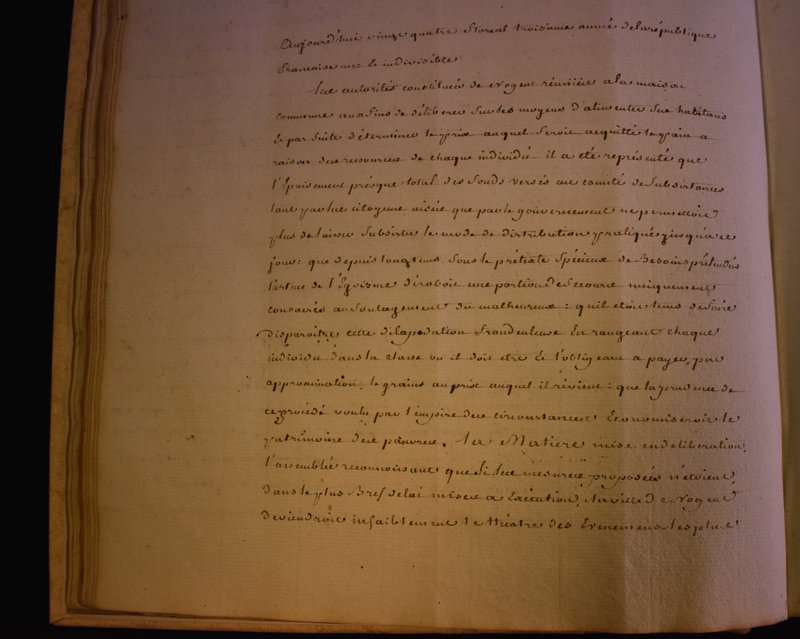 Aujourd'hui vingt quatre floreal troisieme année de la république
francaise une & indivisible
Les autorités constituées de Nogent réunies a la maison
commune aux fins de délibérer sur les moyens d'alimenter ses habitans
& par suite déterminer le prix auquel seroit acquitté le pain a
raison des ressources de chaque individu il a été représenté que
l'Epuisement presque total des fonds versés au comité de subsistances
tant par les citoyens aisées que par le gouvernement ne permettoit
plus de laisser subsister le mode de distribution pratiqué jusqu'a ce
jour : que depuis longtems sous le prétexte spécieux de Besoins prétendus
l'astuce de l'Egoisme déroboit une portion de secours uniquement
consacrés au soulagement du malheureux : qu'il étoit tems de faire
disparoître cette dilapidation frauduleuse En rangeant chaque
individu dans la classe ou il doit être & l'obligeant a payer, par
approximation, le grains au prix auquel il révient : que la prudence de
ce procédé voulu par l'empire des circonstances Economiseroit le
patrimoine des pauvres. La Matière mise en deliberation,
l'assemblée reconnoissant que si les mesures proposées n'étoient,
dans le plus Bref delai mises a Exécution, la ville de Nogent
deviendroit infailliblement le théâtre des Evénemens les plus